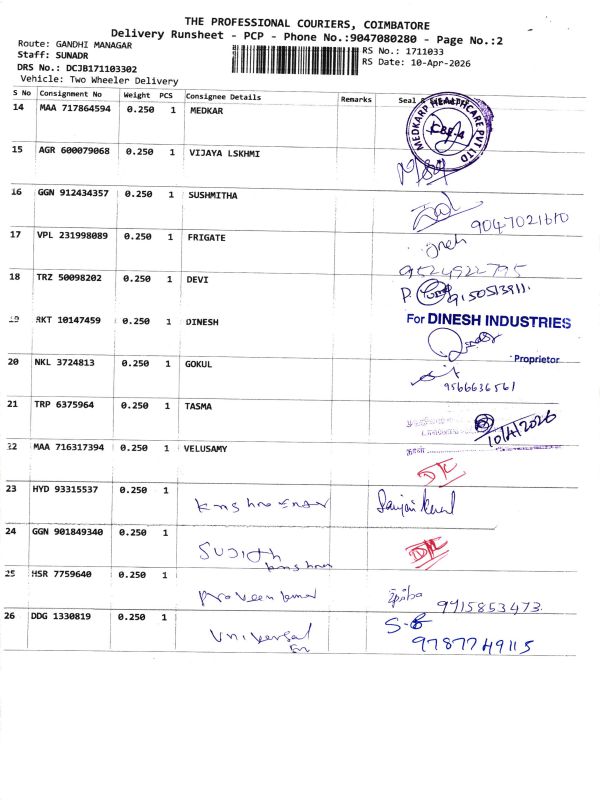 THE PROFESSIONAL COURIERS, COIMBATORE
Delivery Runsheet - PCP - Phone No.:9047080280 - Page No.:2
Route: GANDHI MANAGAR
RS No.: 1711033
Staff: SUNADR
RS Date: 10-Apr-2026
DRS No.: DCJB171103302
Vehicle: Two Wheeler Delivery
S No Consignment No Weight PCS Consignee Details Remarks Seal &
14 MAA 717864594 0.250 1 MEDKAR
MEDKARP HEALTHCARE PVT LTD
CBE-4
15 AGR 600079068 0.250 1 VIJAYA LSKHMI
16 GGN 912434357 0.250 1 SUSHMITHA
9047021610
17 VPL 231998089 0.250 1 FRIGATE
9524922795
18 TRZ 50098202 0.250 1 DEVI
P. 9150513911
19 RKT 10147459 0.250 1 DINESH
For DINESH INDUSTRIES
Proprietor
20 NKL 3724813 0.250 1 GOKUL
9566636561
21 TRP 6375964 0.250 1 TASMA
10/4/2026
நாள்
22 MAA 716317394 0.250 1 VELUSAMY
23 HYD 93315537 0.250 1
24 GGN 901849340 0.250 1 SUJITH
25 HSR 7759640 0.250 1 Praveen kumar
9715853473
26 DDG 1330819 0.250 1 Universal
9787749115